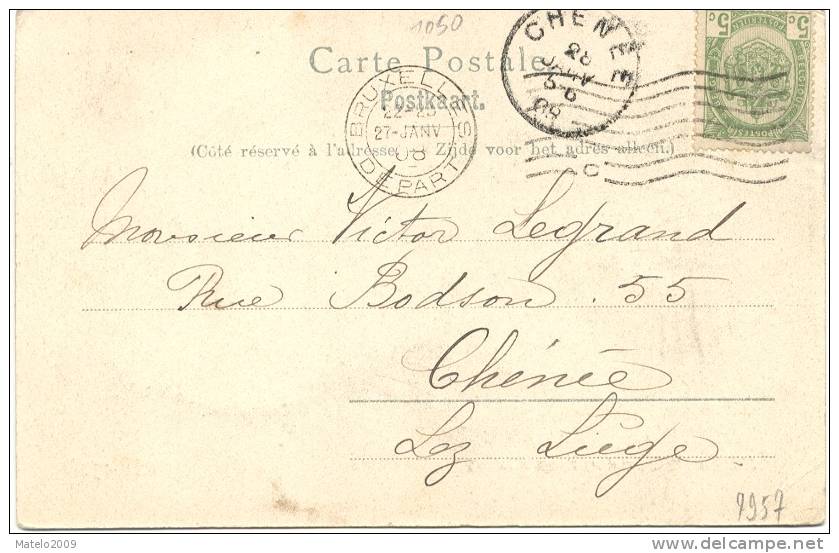 1050
Carte Postale
Postkaart.
(Côté réservé à l'adresse. — Zijde voor het adres alleen.)
BRUXELLES
22-23
27-JANV
08
DEPART
CHENÉE
28
JANV
5-6
08
5c
c5
C
Monsieur Victor Legrand
Rue Bodson . 55
Chénée
Lez Liége
1957
Matelo2009
www.delcampe.net